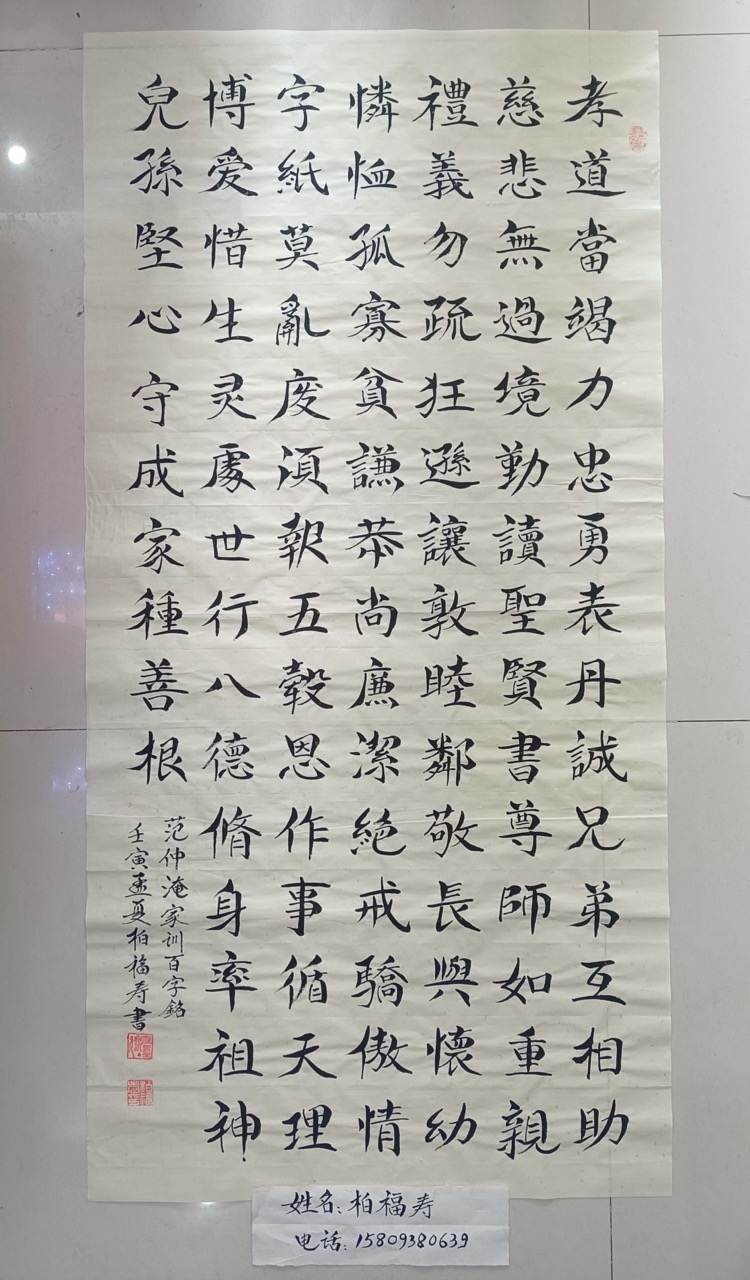 孝道當竭力忠勇表丹誠兄弟互相助
慈悲無過境勤讀聖賢書尊師如重親
禮義勿疏狂遜讓敦睦鄰敬長與懷幼
憐恤孤寡貧謙恭尚廉潔絶戒驕傲情
字紙莫亂废須報五穀恩作事循天理
博爱惜生灵處世行八德脩身率祖神
兒孫堅心守成家種善根
范仲淹家训百字銘
壬寅孟夏柏福寿書
姓名:柏福寿
电话:15809380639